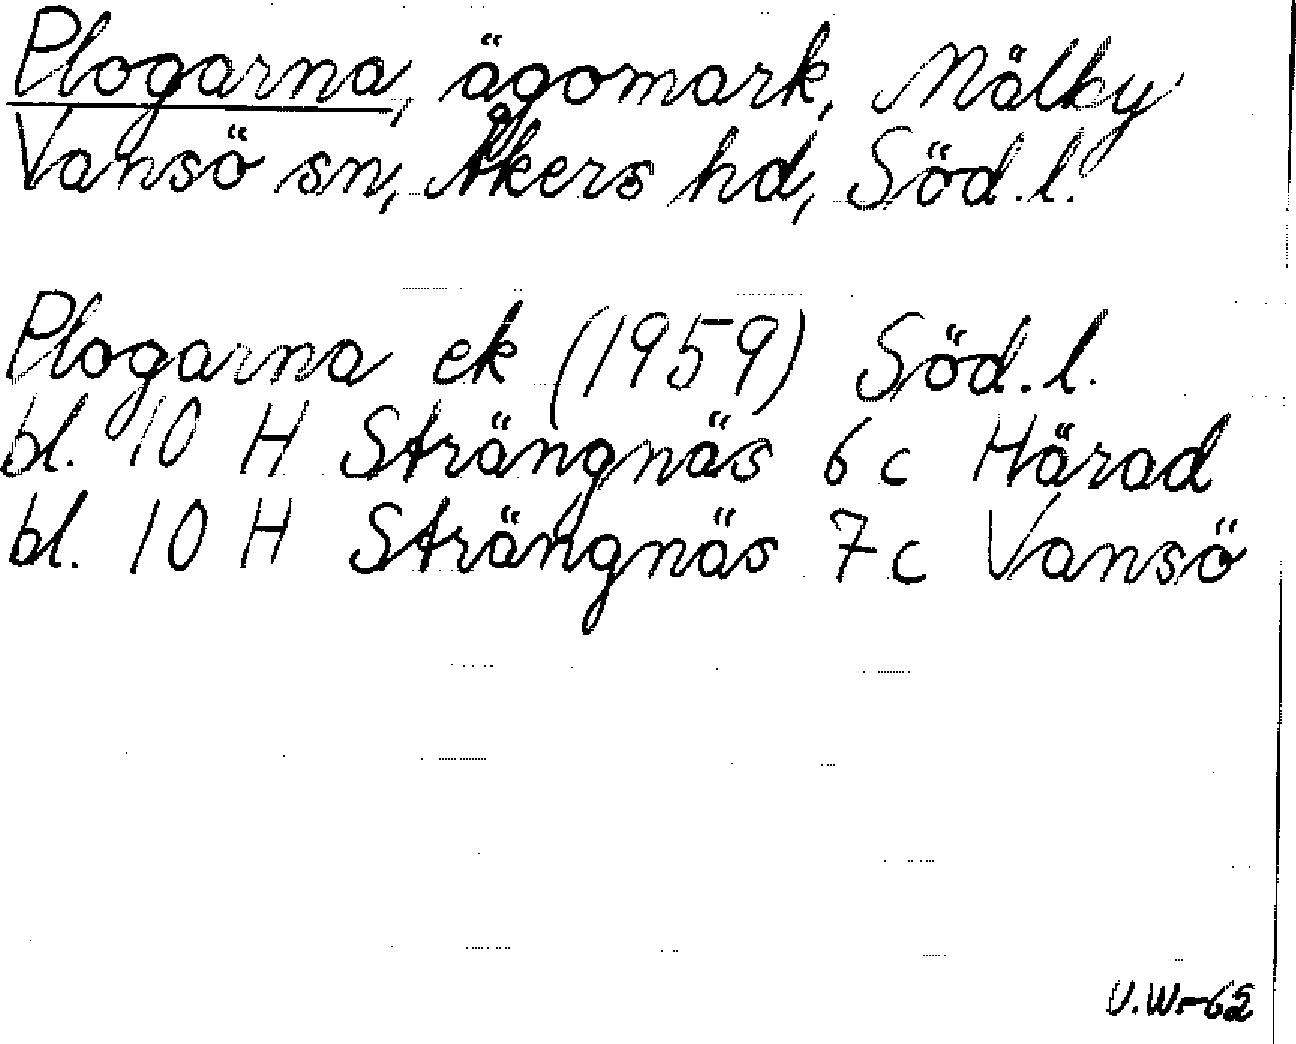 Plogarna, ägomark, Mälby
Vansö sn, Åkers hd, Söd.l.
Plogarna ek (1959) Söd.l.
bl. 10 H Strängnäs 6 c Härad
bl. 10 H Strängnäs 7 c Vansö
U.W.-62